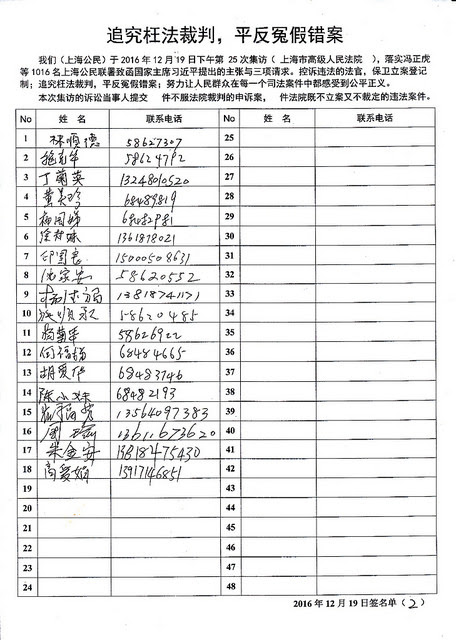 追究枉法裁判，平反冤假错案
我们（上海公民）于 2016 年 12 月 19 日下午第 25 次集访（ 上海市高级人民法院 ），落实冯正虎
等 1016 名上海公民联署致函国家主席习近平提出的主张与三项请求。控诉违法的法官，保卫立案登记
制；追究枉法裁判，平反冤假错案；努力让人民群众在每一个司法案件中都感受到公平正义。
本次集访的诉讼当事人提交 件不服法院裁判的申诉案， 件法院既不立案又不裁定的违法案件。
No 姓 名 联系电话 No 姓 名 联系电话
1 林顺德 58627307 25
2 58624792 26
3 丁菊英 13248010520 27
4 黄美珍 68489819 28
5 68482981 29
6 1361878021 30
7 邱国良 15000508631 31
8 沈家安 58620552 32
9 13818741171 33
10 58620485 34
11 58626922 35
12 何福娣 68484665 36
13 胡爱华 68483746 37
14 陈小妹 68482193 38
15 13564097383 39
16 13611673620 40
17 朱金安 13818475430 41
18 高爱娟 13917146851 42
19 43
20 44
21 45
22 46
23 47
24 48
2016 年 12 月 19 日签名单（2）